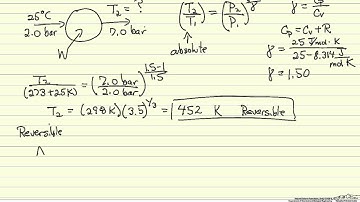 25°C T₂ = ?
2.0 bar 7.0 bar
W
(T₂/T₁) = (P₂/P₁)
absolute
γ = Cp/Cv
Cp = Cv + R
γ = 25 J/mol·K / 25-8.314 J/mol·K
γ = 1.50
T₂/(273+25K) = (7.0 bar/2.0 bar)^(1.5-1/1.5)
T₂ = (298K)(3.5)^(1/3) = 452 K Reversible
Reversible